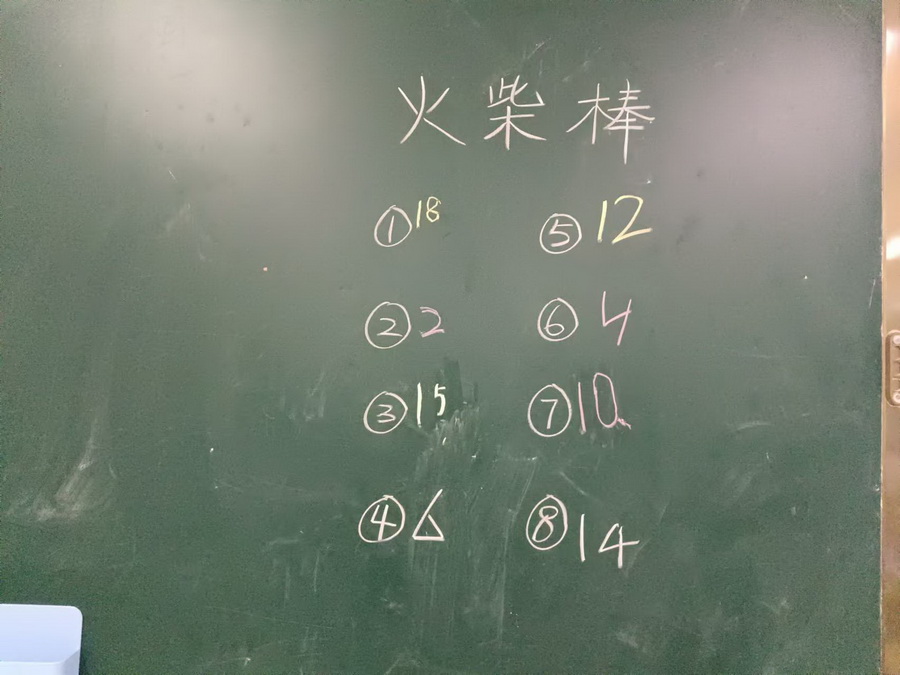 火柴棒
①18 ⑤12
②2 ⑥4
③15 ⑦10
④6 ⑧14